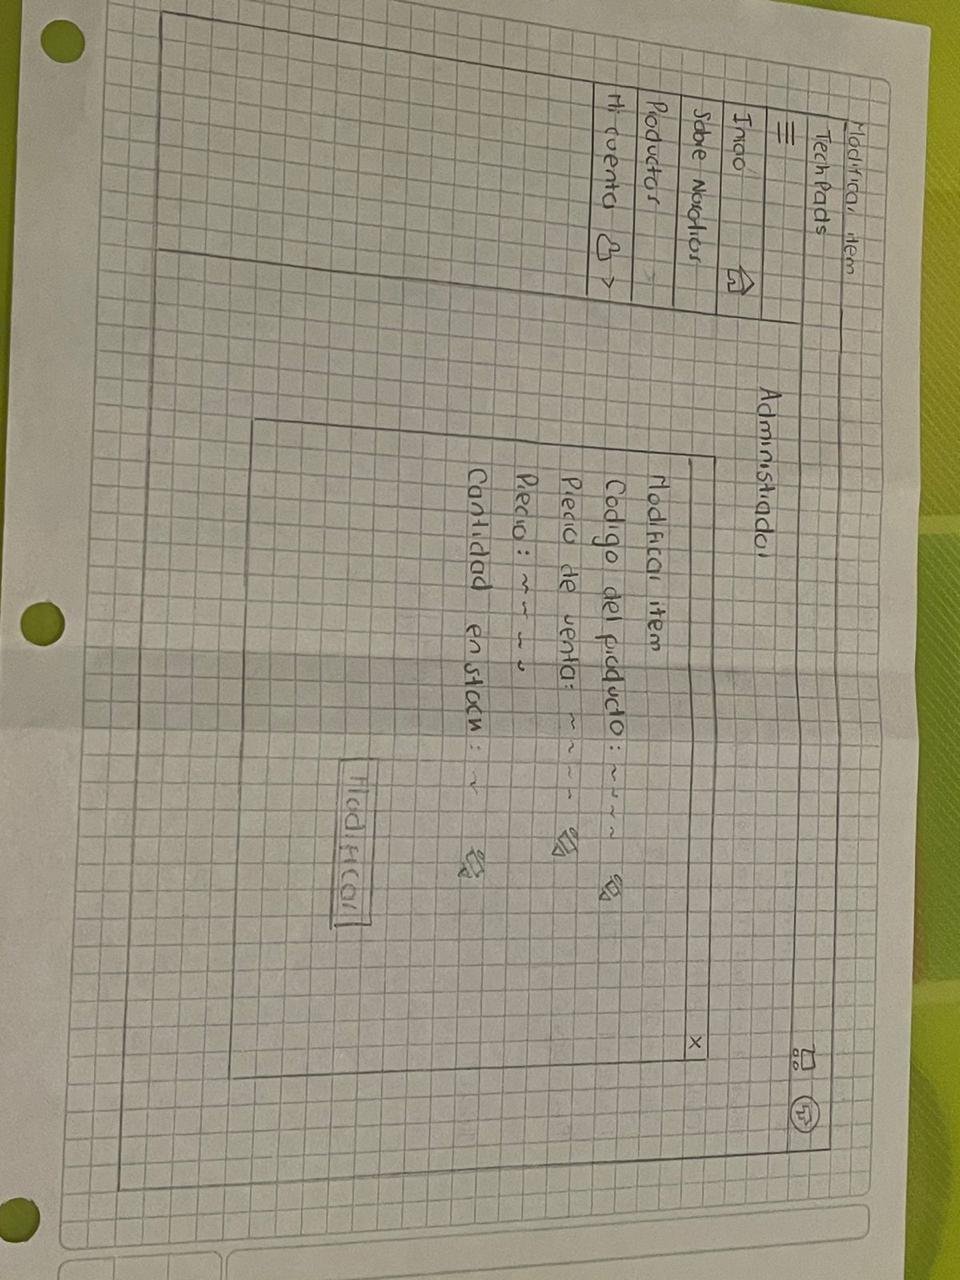 Modificar item
TechPads
Inicio
Sobre Nosotros
Productos >
Mi cuenta >
Administrador
X
Modificar item
Codigo del producto: ~ ~ ~ ~
Precio de venta: ~ ~ ~ ~
Precio: ~ ~ ~ ~
Cantidad en stock: ~
Modificar